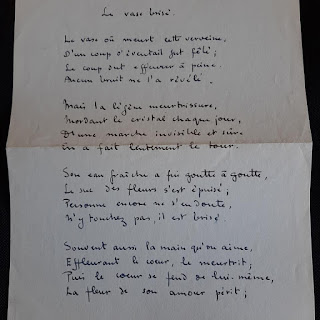 Le vase brisé.
Le vase où meurt cette verveine,
D'un coup d'éventail fut fêlé;
Le coup dut effleurer à peine.
Aucun bruit ne l'a révélé.
Mais la légère meurtrissure,
Mordant le cristal chaque jour,
D'une marche invisible et sûre
En a fait lentement le tour.
Son eau fraîche a fui goutte à goutte,
Le suc des fleurs s'est épuisé;
Personne encore ne s'en doute,
N'y touchez pas, il est brisé.
Souvent aussi la main qu'on aime,
Effleurant le cœur, le meurtrit;
Puis le cœur se fend de lui-même,
La fleur de son amour périt;